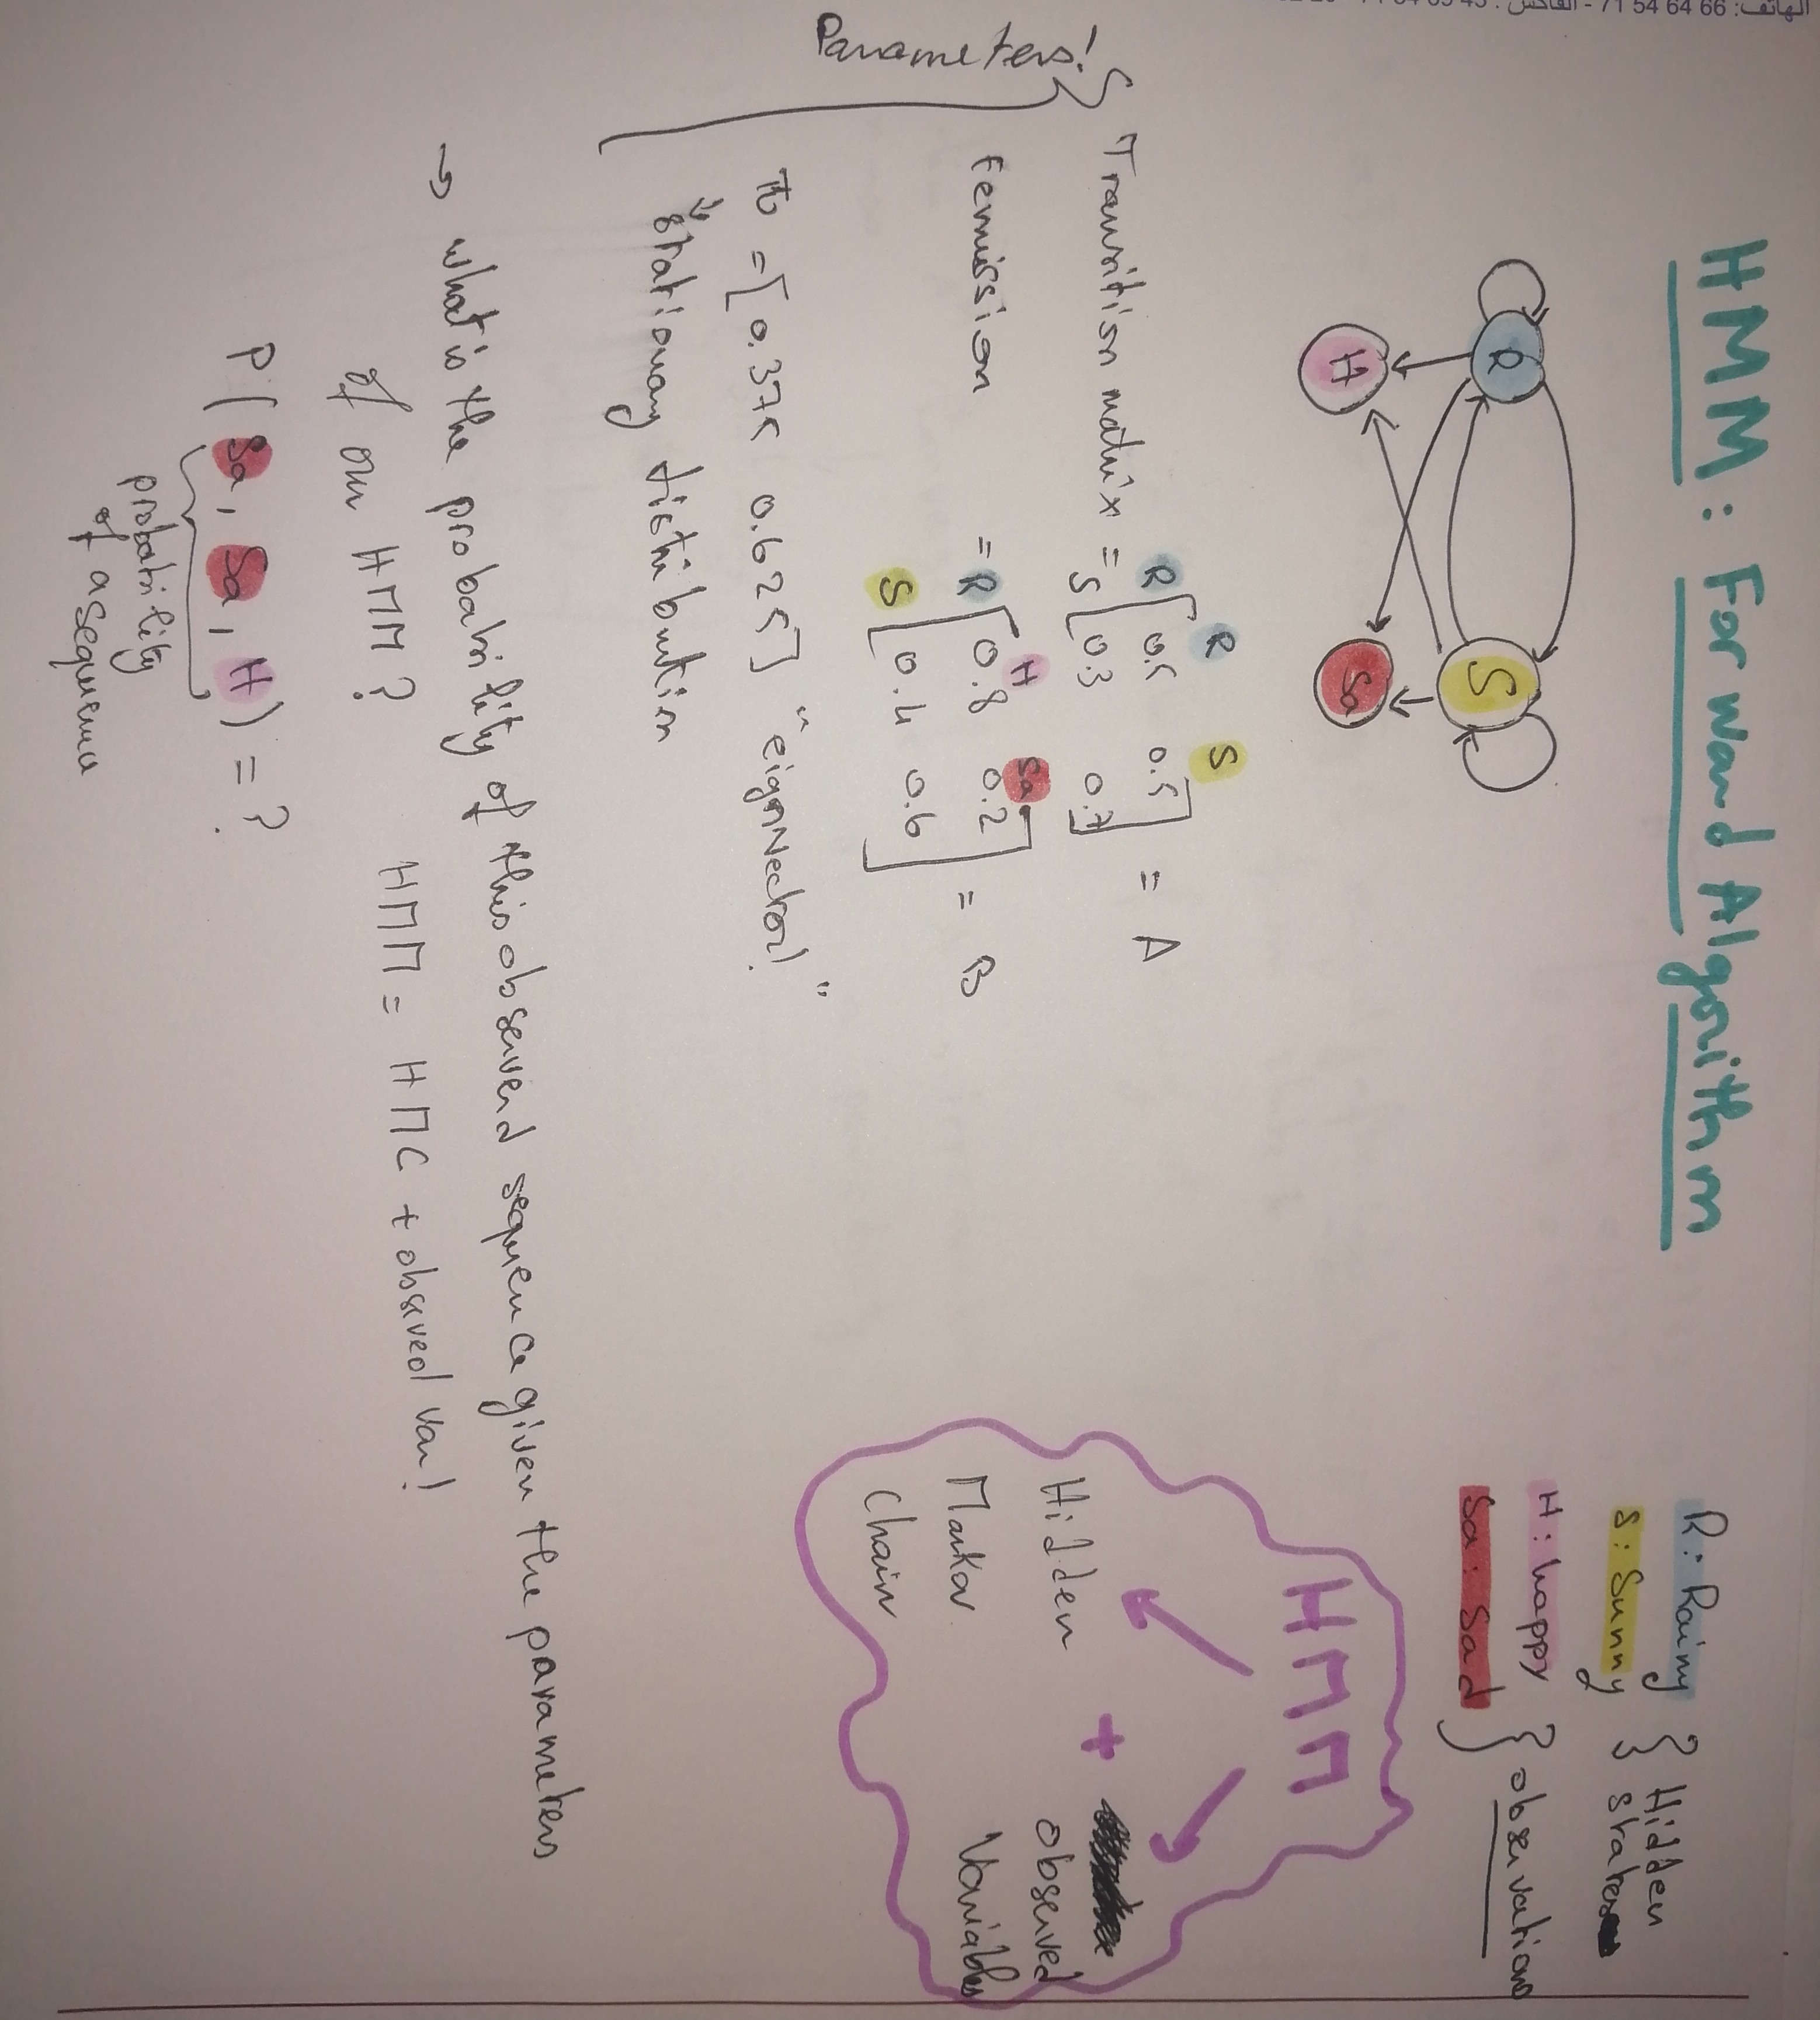 HMM: Forward Algorithm
R: Rainy
S: Sunny
Hidden
states
H: happy
Sa: Sad
observations
R
S
H
Sa
HMM
Hidden
Markov
Chain
+
observed
Variables
Parameters!
R S
Transition matrix = R [0.5 0.5] = A
S [0.3 0.7]
H Sa
= R [0.8 0.2] = B
S [0.4 0.6]
π = [0.375 0.625] "eignvector!"
Stationary distribution
→ what is the probability of this observerd sequence given the parameters
of our HMM? HMM = HMC + observed var!
P(Sa, Sa, H) = ?
probability
of a sequence